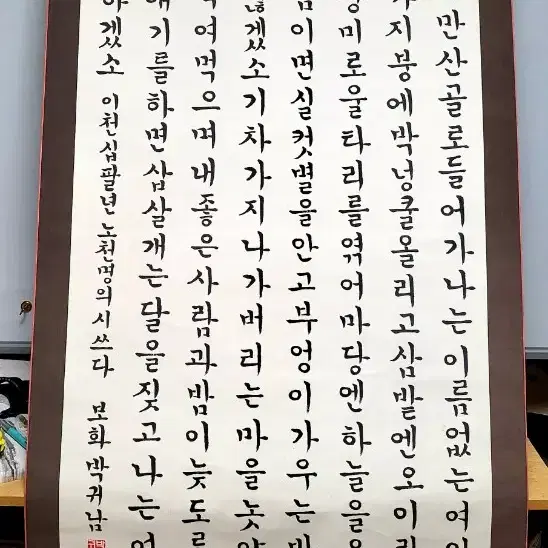 만산골로들어가나는이름없는여
지붕에박넝쿨올리고삼밭엔오이
장미로울타리를엮어마당엔하늘을
이면실컷별을안고부엉이가우는
않겠소기차가지나가버리는마을놋
여먹으며내좋은사람과밤이늦도
기를하면삽살개는달을짖고나는
하겠소 이천십팔년노천명의시쓰다 보화 박귀남